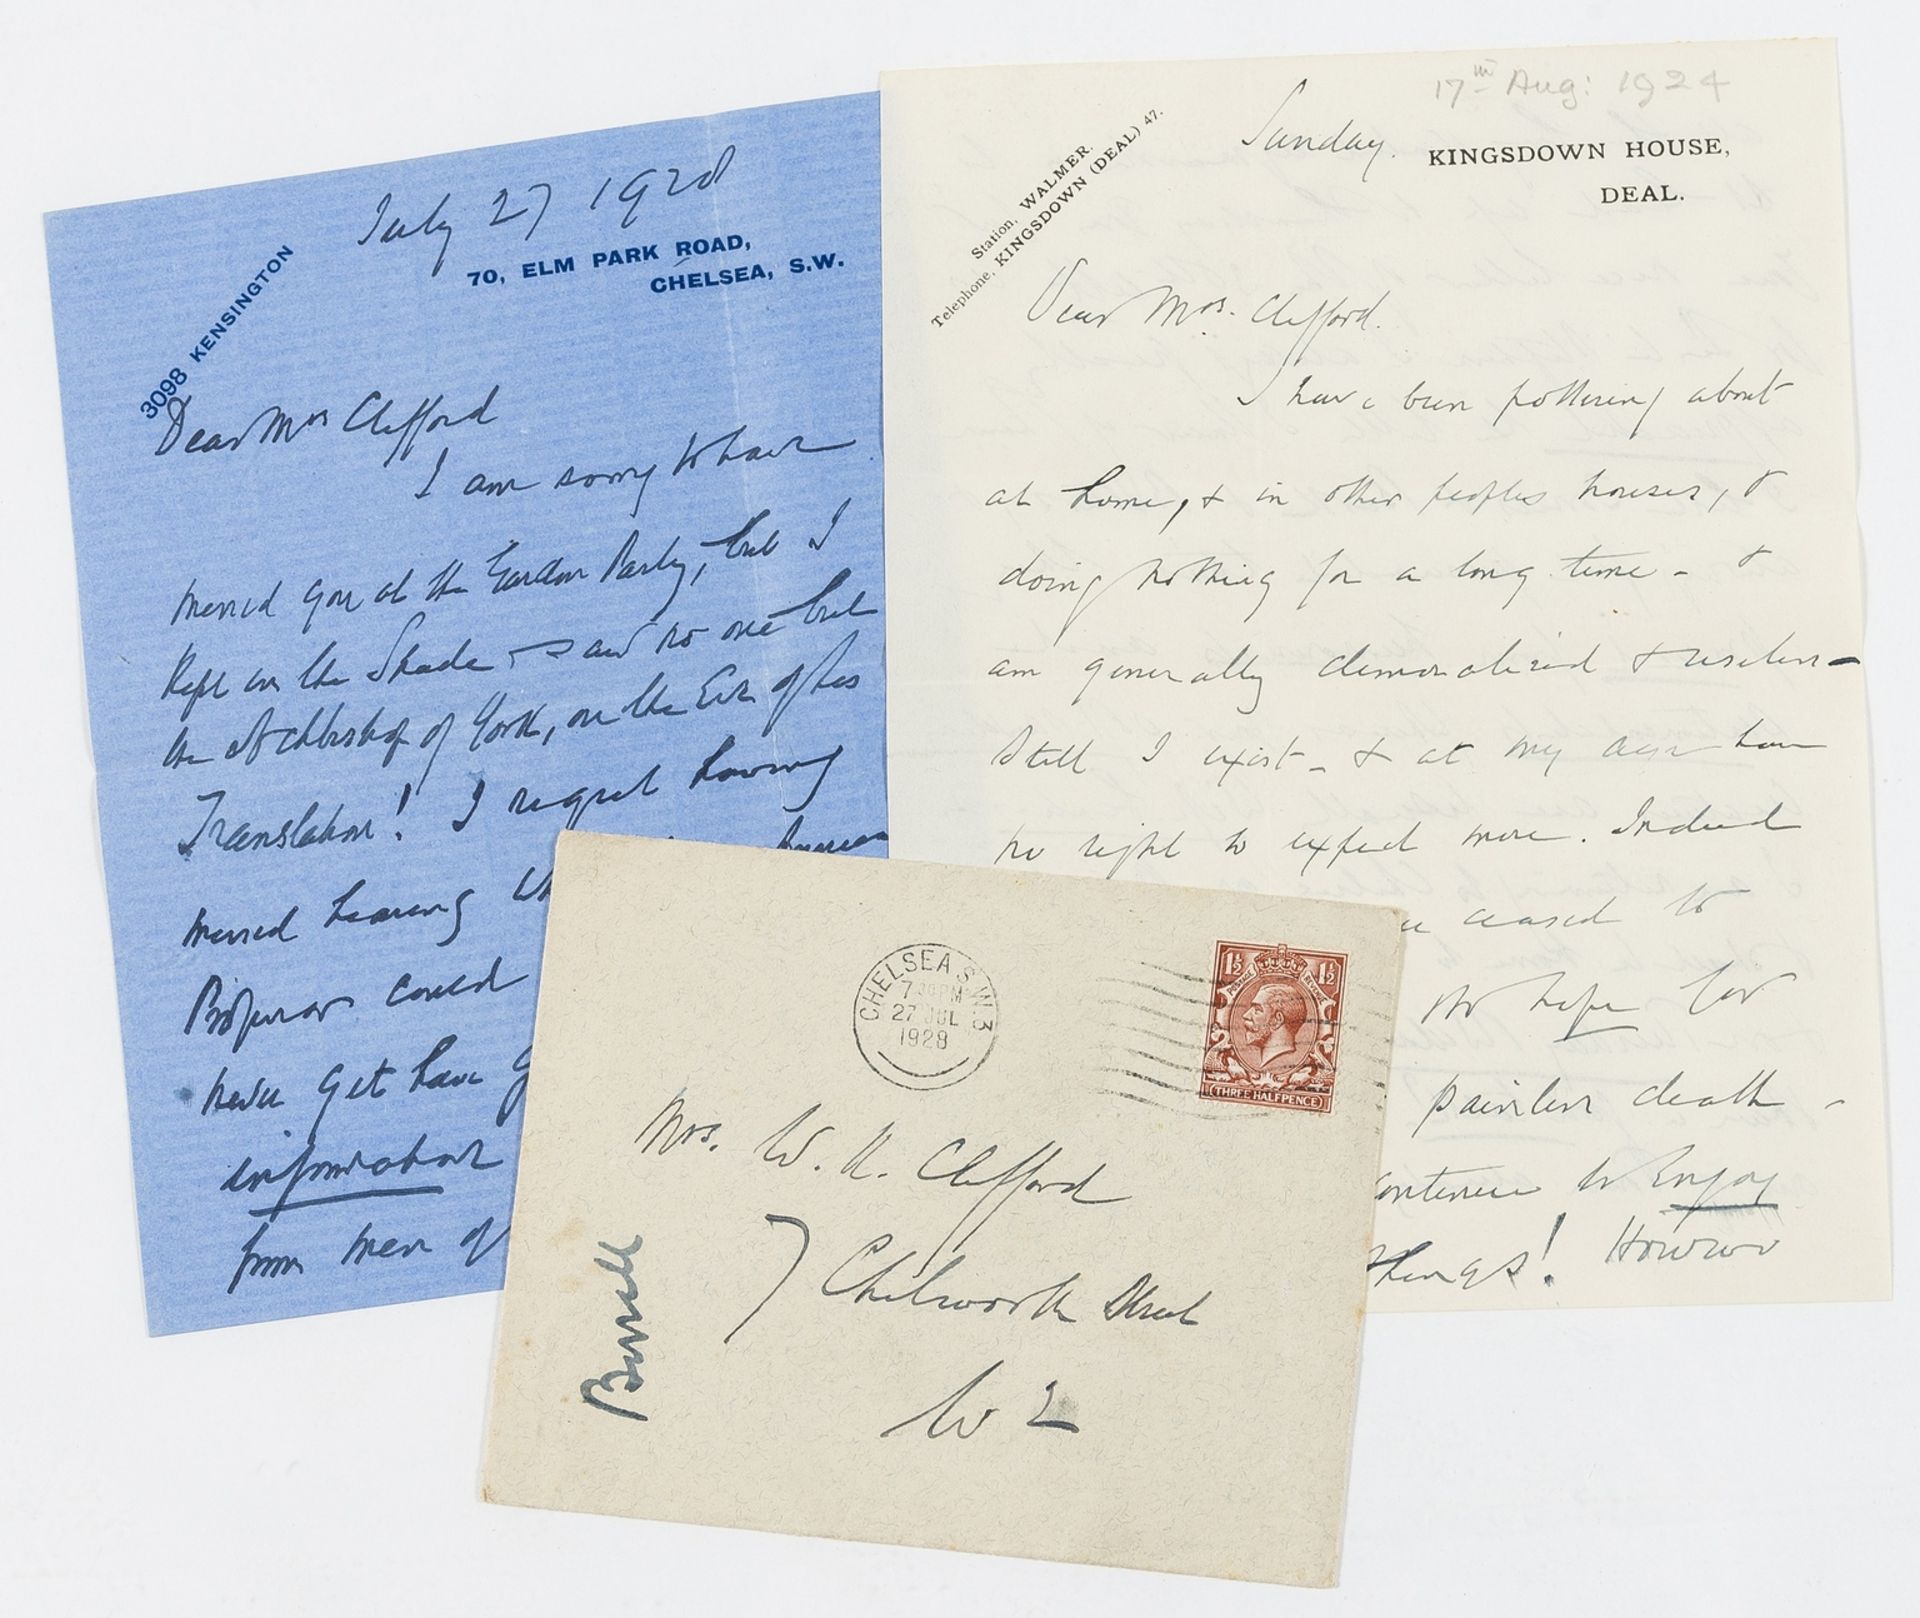 July 27 1928
70, ELM PARK ROAD,
CHELSEA, S.W.
3098 KENSINGTON
Dear Mrs Clifford
I am sorry to have
missed you at the Garden Party, but I
kept in the Shade & saw no one but
the Archbishop of York, on the Eve of his
Translation! I regret having
missed hearing
Professor could
never get have
information
from men of
17th Aug: 1924
Sunday.
KINGSDOWN HOUSE,
DEAL.
Station, WALMER.
Telephone, KINGSDOWN (DEAL) 47.
Dear Mrs. Clifford.
I have been pottering about
at home, & in other peoples houses, &
doing nothing for a long time - &
am generally demoralised & useless -
Still I exist - & at my age have
no right to expect more. Indeed
ceased to
no hope for
painless death -
continue to Enjoy
things! However
CHELSEA S.W.3
7 30 PM
27 JUL
1928
1½ 1½
POSTAGE REVENUE
THREE HALFPENCE
Mrs. W. K. Clifford
7 Chilworth Street
W 2
Birrell